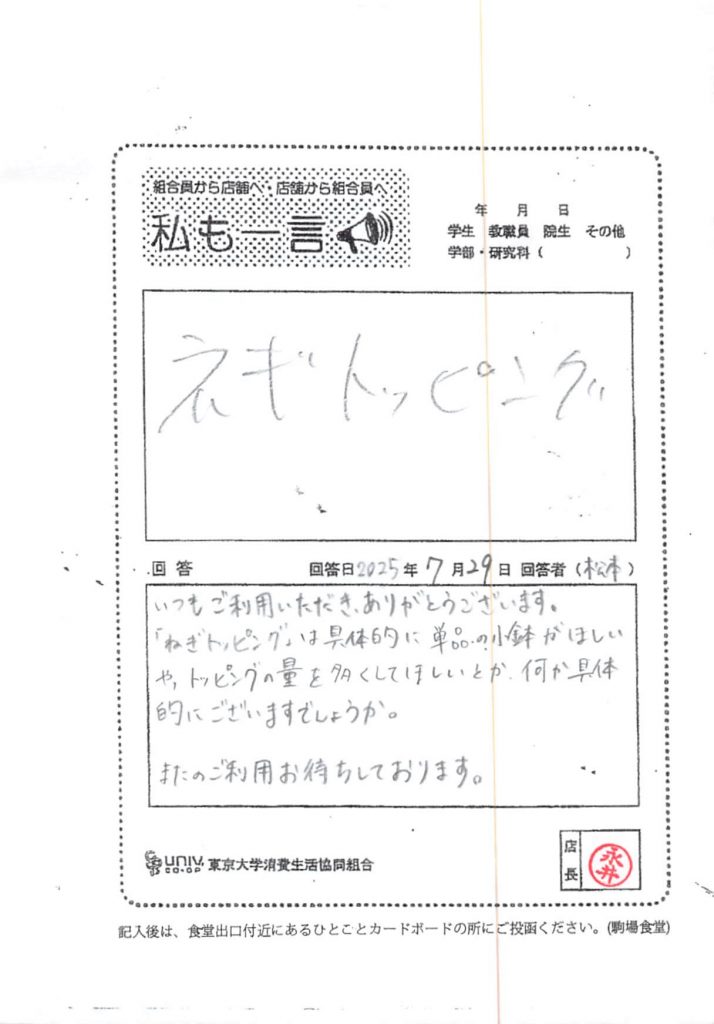 組合員から店舗へ・店舗から組合員へ
私も一言
年 月 日
学生 教職員 院生 その他
学部・研究科( )
ネギトッピング
回答 回答日2025年7月29日 回答者(松本)
いつもご利用いただき、ありがとうございます。
「ねぎトッピング」は具体的に単品の小鉢がほしい
や、トッピングの量を多くしてほしいとか、何か具体
的にございますでしょうか。
またのご利用お待ちしております。
UNIV. CO-OP 東京大学消費生活協同組合
店長 永井
記入後は、食堂出口付近にあるひとことカードボードの所にご投函ください。(駒場食堂)